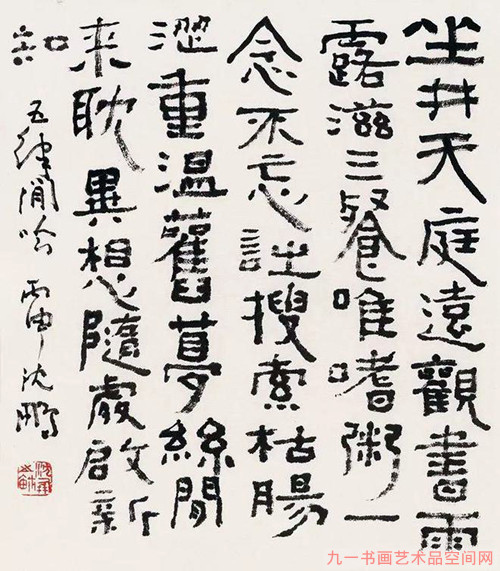 坐井天庭遠觀書雨
露滋三餐唯嗜粥一
念不忘詩搜索枯腸
澀重溫舊夢絲閒
来耽異想隨處啟新
知
五律閒吟 丙申 沈鵬
九一书画艺术品空间网